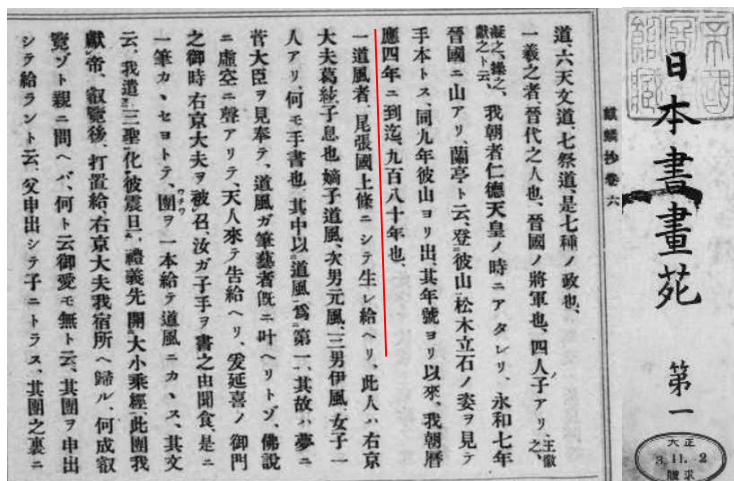 日本書畫苑 第一
大正
3.11.2
購求
麒麟抄卷六
道、六天文道、七祭道、是七種ノ政也、
一羲之者、晉代之人也、晉國ノ將軍也、四人ノ子アリ、王徽之、
凝之、操之、獻之ト云、我朝者仁德天皇ノ時ニアタレリ、永和七年
晉國ニ山アリ、蘭亭ト云、登彼山松木立石ノ姿ヲ見テ
手本トス、同九年彼山ヨリ出、其年號ヨリ以來、我朝曆
應四年ニ到迄、九百八十年也、
一道風者、尾張國上條ニシテ生レ給ヘリ、此人ハ右京
大夫葛絃子息也、嫡子道風、次男元風、三男伊風、女子一
人アリ、何モ手書也、其中以道風爲第一、其故ハ夢ニ
菅大臣ヲ見奉テ、道風ガ筆藝者旣ニ叶ヘリトゾ、佛說
ニ虛空ニ聲アリテ、天人來テ告給ヘリ、爰延喜ノ御門
之御時右京大夫ヲ被召、汝ガ子手ヲ書之由聞食、是ニ
一筆カヽセヨトテ、團ヲ一本給テ道風ニカヽス、其文
云、我遣三聖化彼震旦、禮義先開、大小乘經、此團我
獻帝、叡覽後、打置給、右京大夫我宿所ヘ歸ル、何成叡
覽ゾト親ニ問ヘバ、何ト云御愛モ無ト云、其團ヲ申出
シテ給ラント云、父申出シテ子ニトラス、其團之裏ニ